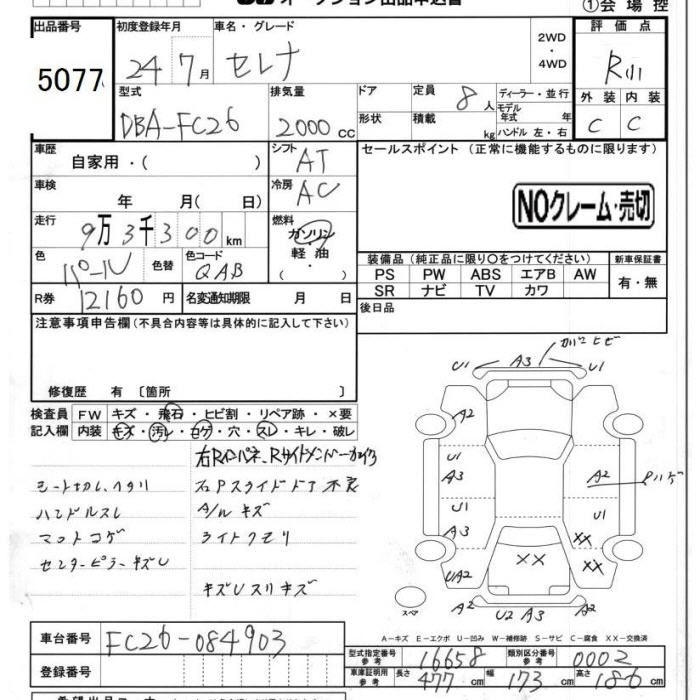 オークション出品申込書
①会場控
出品番号 初度登録年月 車名・グレード 2WD・4WD 評価点
5077 24 7月 セレナ R小
型式 排気量 ドア 定員 8人 ディーラー・並行 外装 内装
DBA-FC26 2000cc 形状 積載 kg モデル年式 年 ハンドル 左・右 C C
車歴 自家用・( ) シフト AT セールスポイント (正常に機能するものに限ります)
車検 年 月( 日) 冷房 AC
NOクレーム・売切
走行 9万3千300km 燃料 ガソリン・軽油・( )
色 パール 色替 色コード QAB
装備品 (純正品に限り○をつけてください) 新車保証書
PS PW ABS エアB AW 有・無
SR ナビ TV カワ
R券 12160円 名変通知期限 月 日 後日品
注意事項申告欄 (不具合内容等は具体的に記入して下さい)
修復歴 有 〔箇所 〕
検査員記入欄 FW キズ・飛石・ヒビ割・リペア跡・×要
内装 キズ・汚レ・コゲ・穴・スレ・キレ・破レ
シート切レ、ヘタリ 右Pスライドドア不良
ハンドルスレ A/Wキズ
マットコゲ ライトクモリ
センターピラーキズU
キズUスリキズ
U1 A3 U1 カバーヒビ
A2
U1
A3 A2 Pハゲ
U1
A3 XX
UA2 XX XX
スペア A2 U2 A3 A2
A-キズ E-エクボ U-凹み W-補修跡 S-サビ C-腐食 XX-交換済
車台番号 FC26-084903
登録番号
型式指定番号 参考 16658 類別区分番号 参考 0002
車庫証明用 参考 長さ 477cm 幅 173cm 高さ 186cm